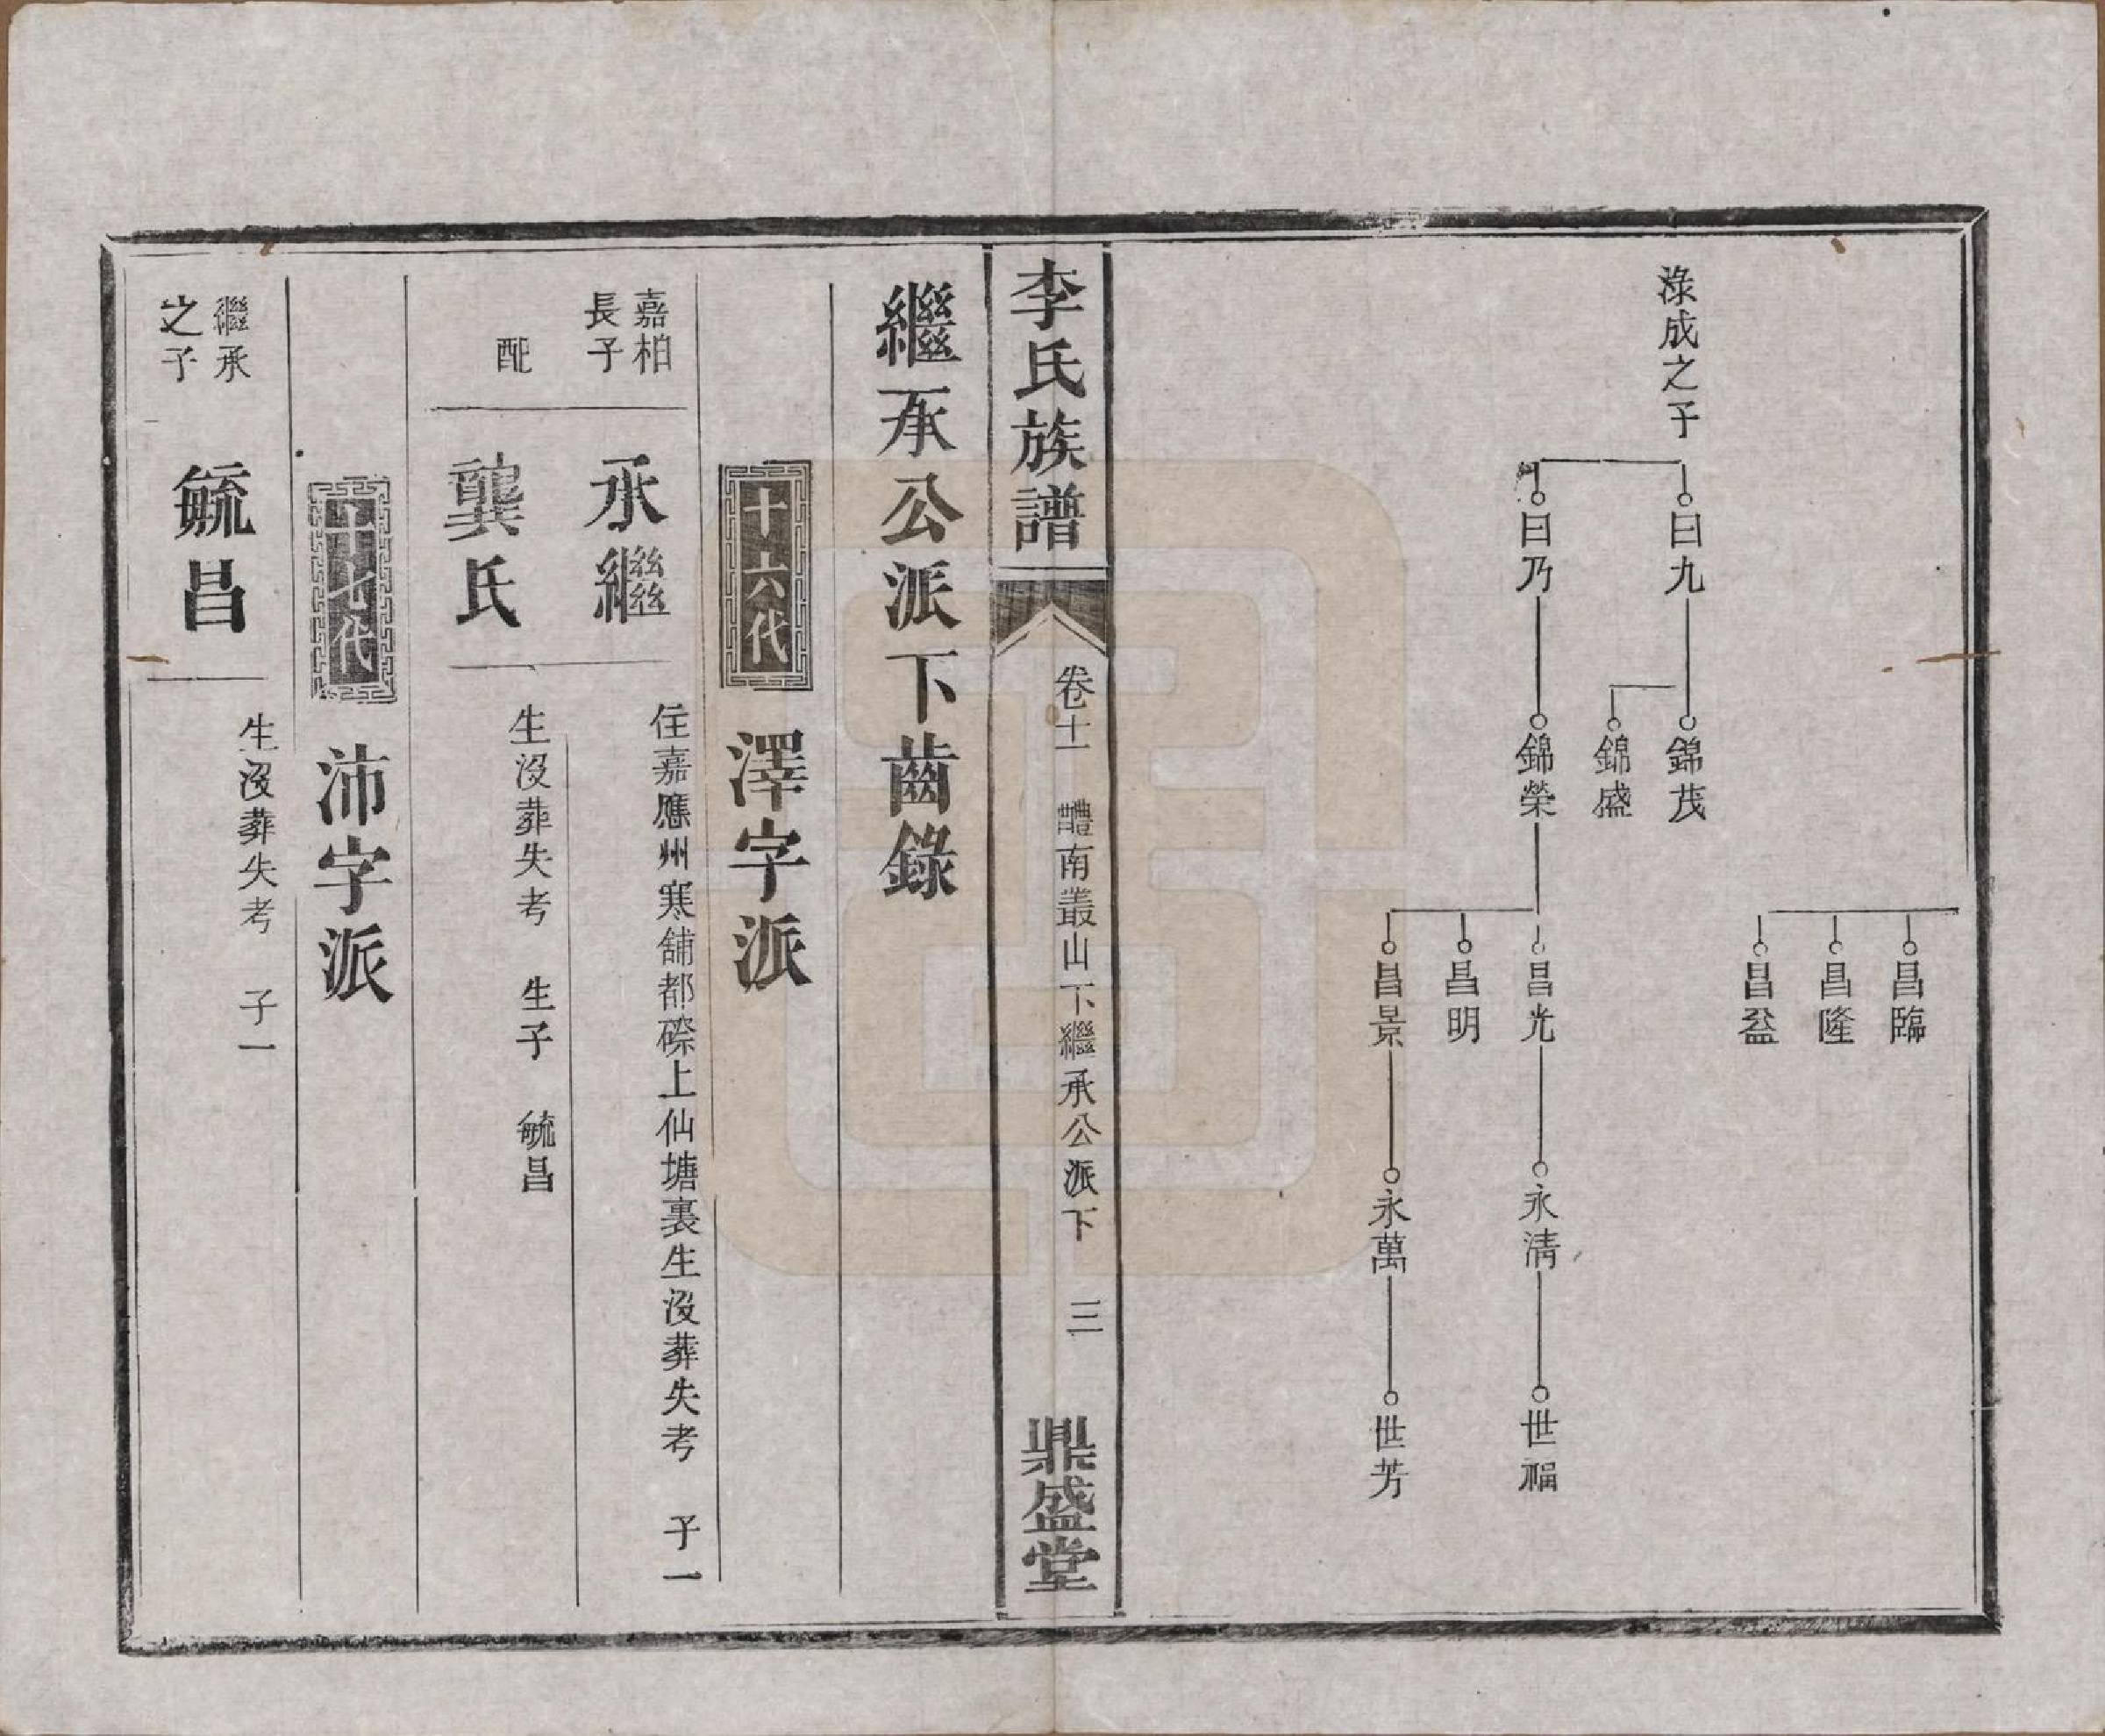 渌成之子
曰九
錦茂
錦盛
曰乃
錦榮
昌臨
昌隆
昌盆
昌光
永清
世福
昌明
昌景
永萬
世芳
李氏族譜
卷十一
醴南叢山下繼承公派下
三
鼎盛堂
繼承公派下齒錄
十六代 澤字派
嘉柏
長子
承繼
住嘉應州寒舖都磜上仙塘裏生沒葬失考 子一
配
龔氏
生沒葬失考 生子 毓昌
十七代 沛字派
繼承
之子
毓昌
生沒葬失考 子一